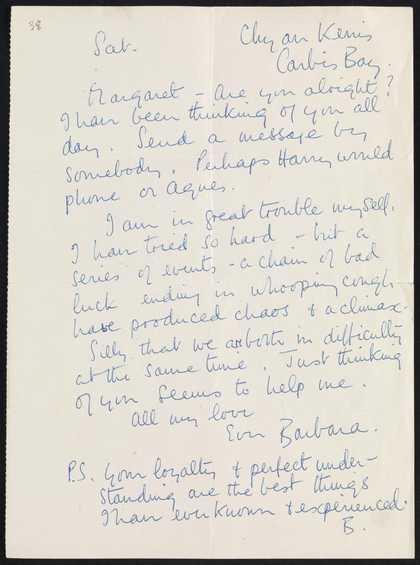 38
Sat.
Chy an Kerris
Carbis Bay.
Margaret - are you alright?
I have been thinking of you all
day. Send a message by
somebody. Perhaps Harry would
phone or Agnes.
I am in great trouble myself.
I have tried so hard - but a
series of events - a chain of bad
luck ending in whooping cough.
have produced chaos & a climax.
Silly that we are both in difficulty
at the same time. Just thinking
of you seems to help me.
All my love
Ever Barbara.
P.S. Your loyalty & perfect under-
standing are the best things
I have ever known & experienced.
B.